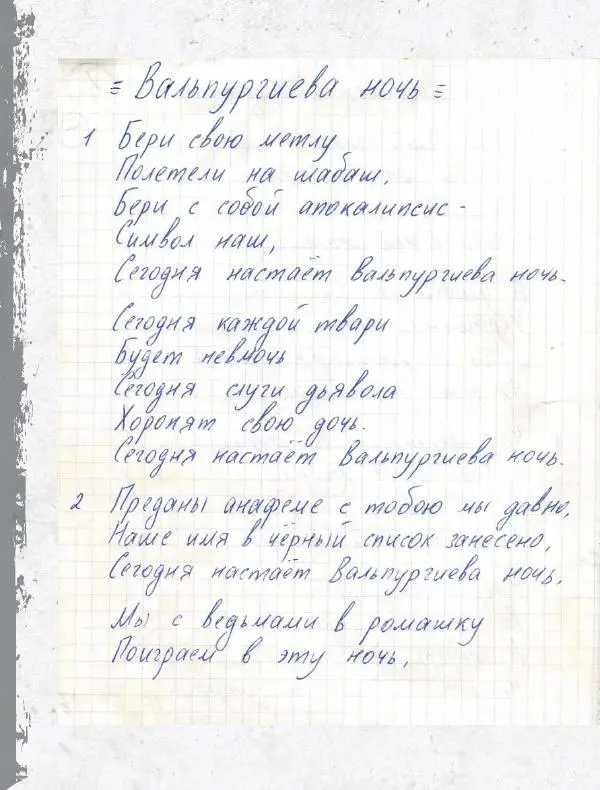 = Вальпургиева ночь =
1 Бери свою метлу
Полетели на шабаш,
Бери с собой апокалипсис -
Символ наш,
Сегодня настаёт Вальпургиева ночь.
Сегодня каждой твари
Будет невмочь
Сегодня слуги дьявола
Хоронят свою дочь.
Сегодня настаёт Вальпургиева ночь.
2 Преданы анафеме с тобою мы давно,
Наше имя в чёрный список занесено,
Сегодня настаёт Вальпургиева ночь.
Мы с ведьмами в ромашку
Поиграем в эту ночь,